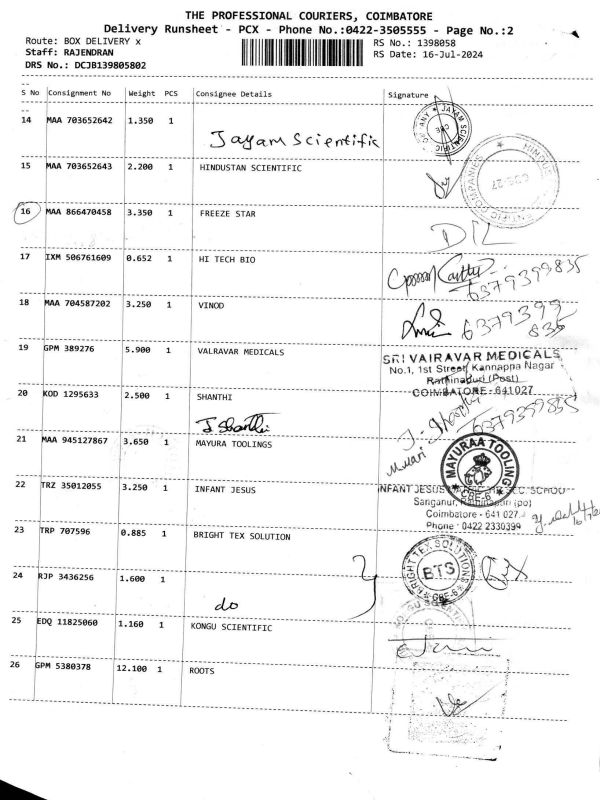 THE PROFESSIONAL COURIERS, COIMBATORE
Delivery Runsheet - PCX - Phone No.:0422-3505555 - Page No.:2
Route: BOX DELIVERY x RS No.: 1398058
Staff: RAJENDRAN RS Date: 16-Jul-2024
DRS No.: DCJB139805802
S No Consignment No Weight PCS Consignee Details Signature
14 MAA 703652642 1.350 1
Jayam Scientific
15 MAA 703652643 2.200 1 HINDUSTAN SCIENTIFIC
16 MAA 866470458 3.350 1 FREEZE STAR
17 IXM 506761609 0.652 1 HI TECH BIO
6379399835
18 MAA 704587202 3.250 1 VINOD
6379399
835
19 GPM 389276 5.900 1 VALRAVAR MEDICALS
SRI VAIRAVAR MEDICALS
No.1, 1st Street, Kannappa Nagar
Rathinapuri (Post)
COIMBATORE - 641027
20 KOD 1295633 2.500 1 SHANTHI
J. Shanthi
6379399835
21 MAA 945127867 3.650 1 MAYURA TOOLINGS
MAYURAA TOOLING
CBE-6
22 TRZ 35012055 3.250 1 INFANT JESUS
INFANT JESUS SEC. SCHOO
Sanganur, Rathinapuri (po)
Coimbatore - 641 027.
Phone : 0422 2330399
23 TRP 707596 0.885 1 BRIGHT TEX SOLUTION
BRIGHT TEX SOLUTIONS
BTS
CBE-6
24 RJP 3436256 1.600 1
do
25 EDQ 11825060 1.160 1 KONGU SCIENTIFIC
26 GPM 5380378 12.100 1 ROOTS